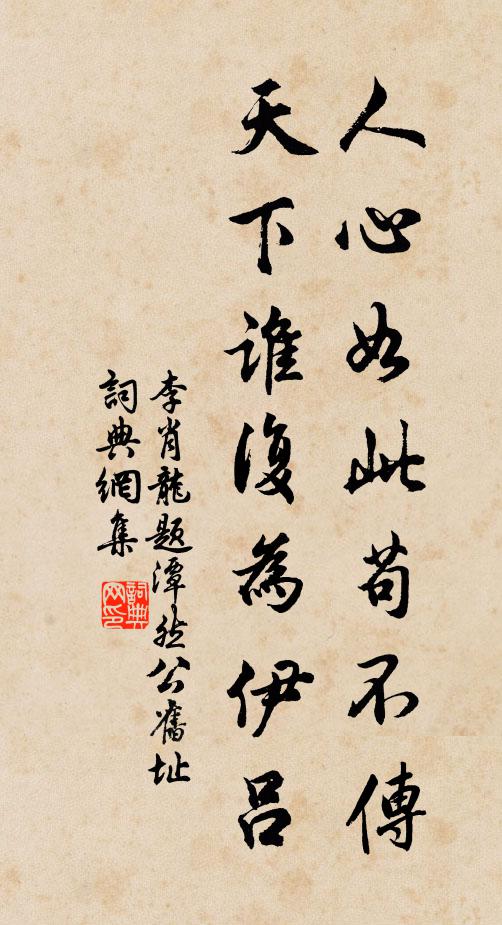 人心如此苟不傳
天下誰復為伊呂
李肖龍題潭然公舊址
詞典網集
詞典网印